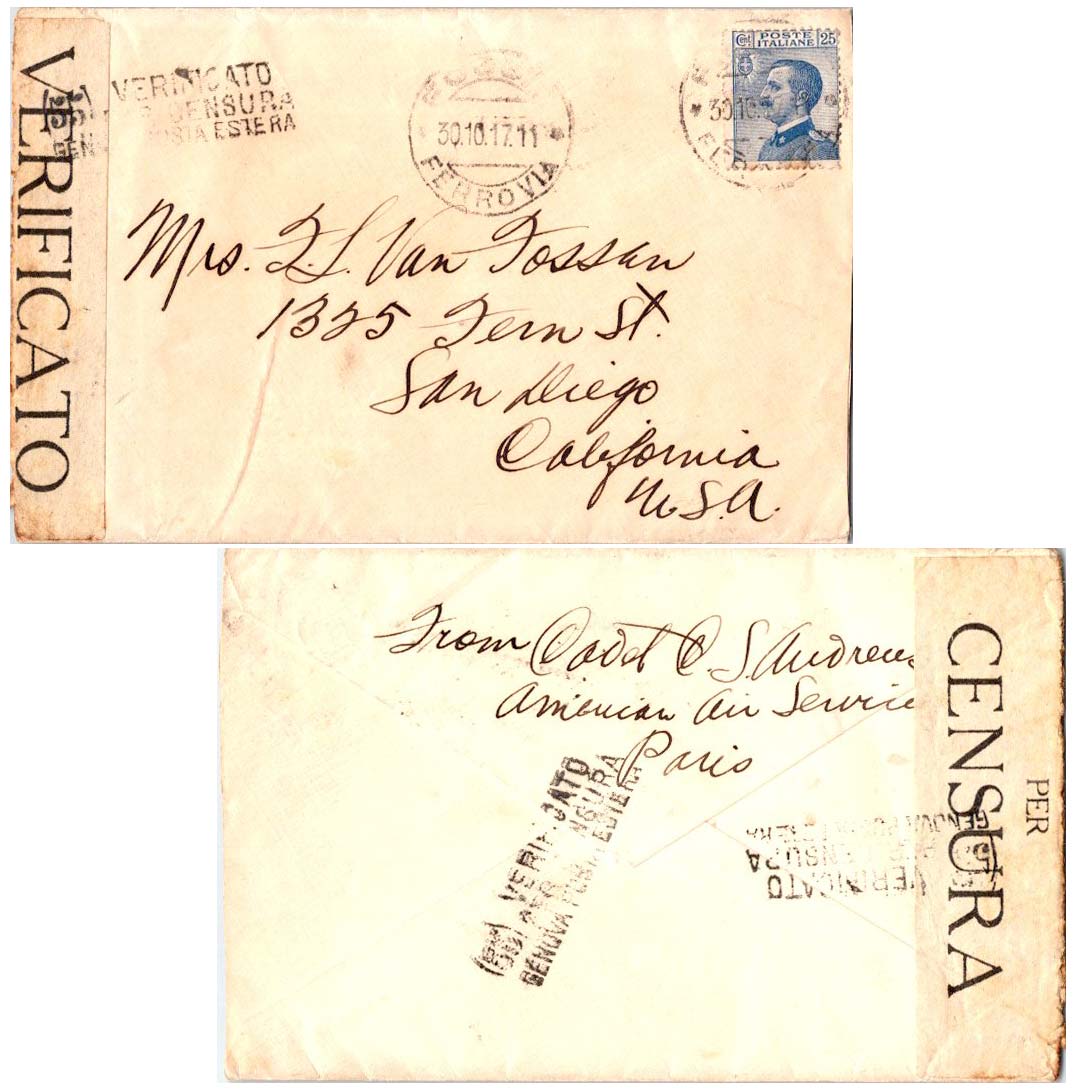 VERIFICATO
VERIFICATO
CENSURA
POSTA ESTERA
30.10.17.11
FERROVIA
Cent POSTE ITALIANE 25
30.10.
Mrs. F. S. Van Fossan
1325 Fern St.
San Diego
California
U.S.A.
From Cadet C. S. Andrews
American Air Service
Paris
VERIFICATO
PER CENSURA
GENOVA POSTA ESTERA
VERIFICATO
PER CENSURA
GENOVA POSTA ESTERA
PER
CENSURA